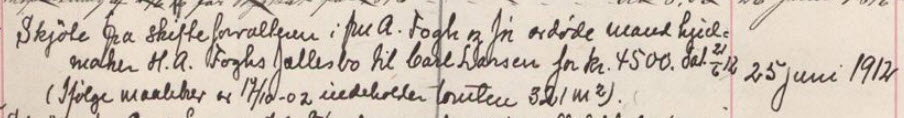 Skjöte fra skifteforvalteren i fru A. Fogh og fru's avdöde mand hjul=
maker H. A. Foghs fællesbo til Carl Larsen for kr. 4500. dat. 21/6 12 25 juni 1912
(Ifölge maalebrev av 17/10-02 indeholder tomten 321 m²).